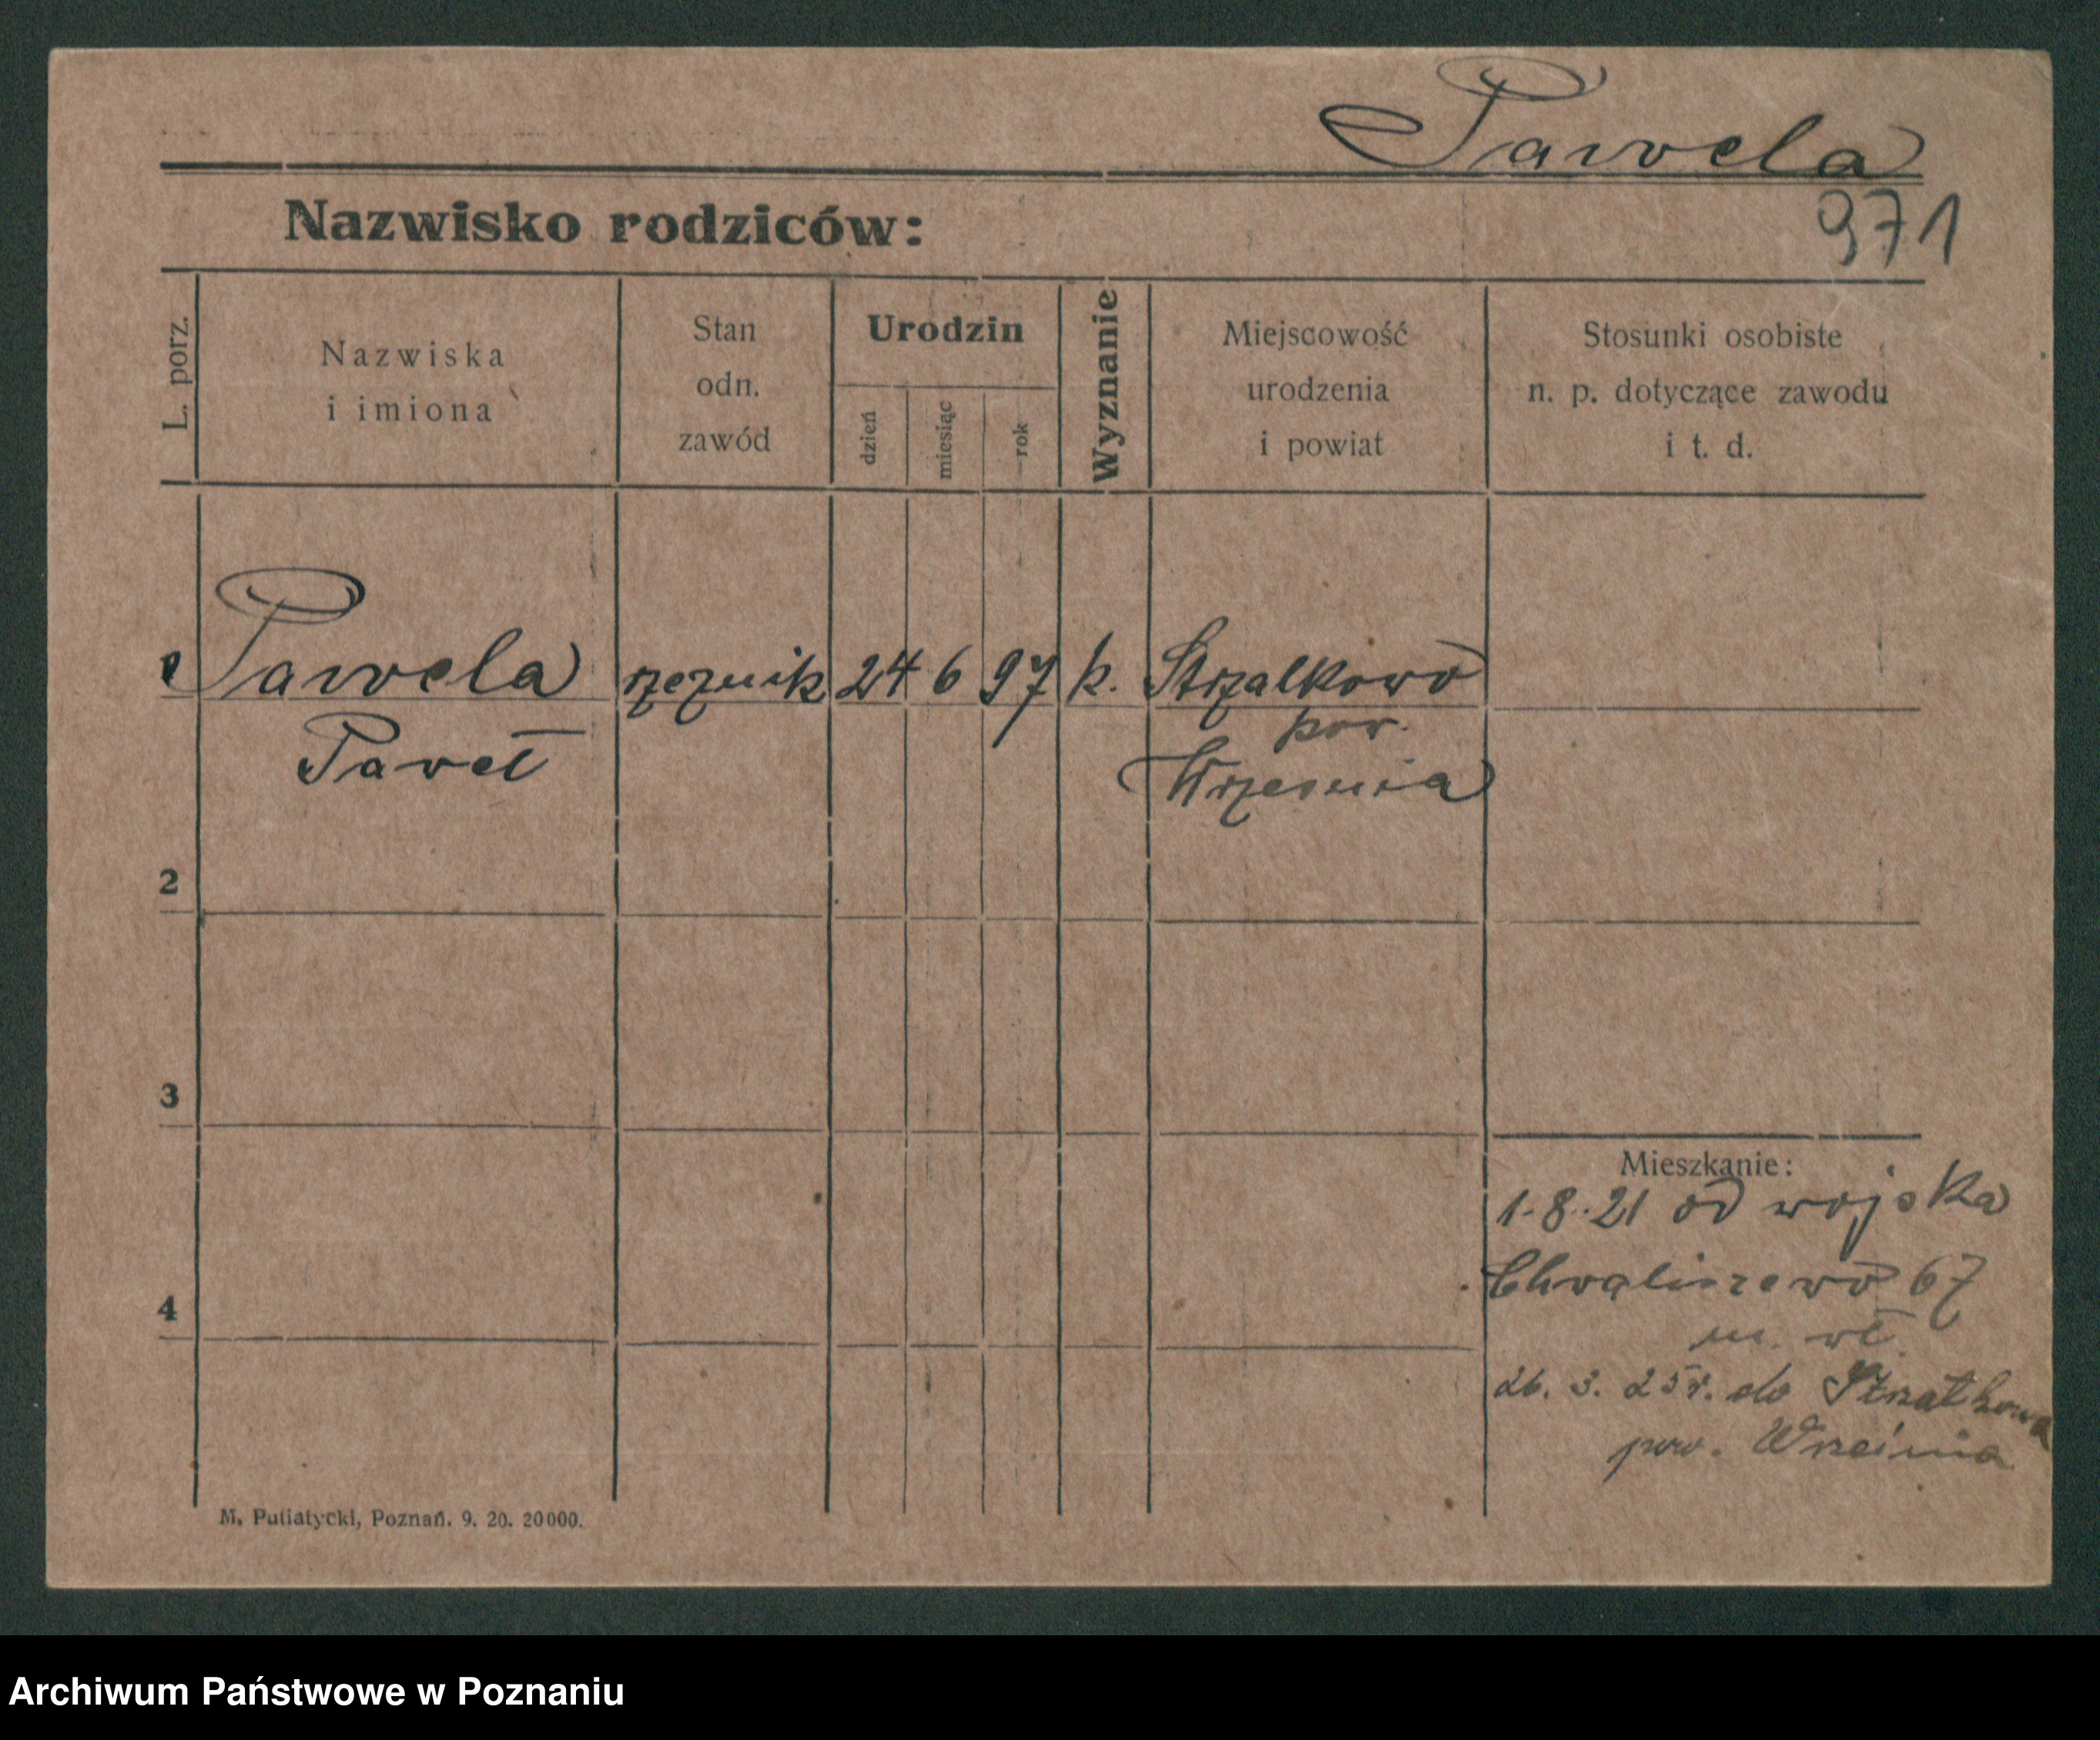 Pawela
971
Nazwisko rodziców:
L. porz.
Nazwiska
i imiona
Stan
odn.
zawód
Urodzin
dzień
miesiąc
rok
Wyznanie
Miejscowość
urodzenia
i powiat
Stosunki osobiste
n. p. dotyczące zawodu
i t. d.
Pawela rzeznik 24 6 97 k. Strzalkowo
pow.
Paweł
Wrzesnia
2
3
4
Mieszkanie:
1.8.21 od wojska
Chwaliszewo 67
m. wł.
26. 3. 25 r. do Strzałkowa
pow. Września
M. Putiatycki, Poznań. 9. 20. 20000.
Archiwum Państwowe w Poznaniu